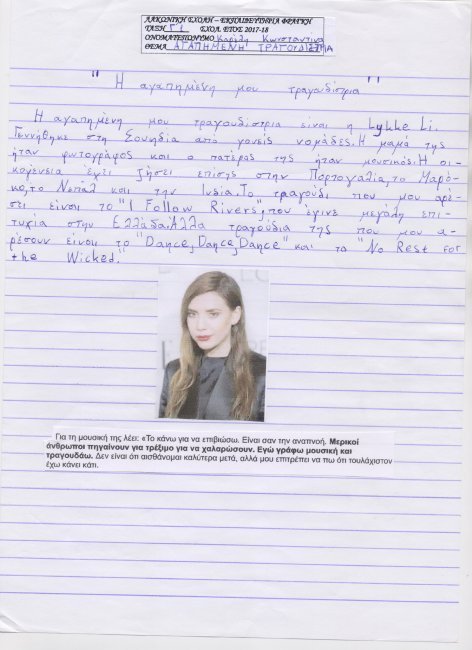 ΛΑΚΩΝΙΚΗ ΣΧΟΛΗ – ΕΚΠΑΙΔΕΥΤΗΡΙΑ ΦΡΑΓΚΗ
ΤΑΞΗ Γ1 ΣΧΟΛ. ΕΤΟΣ 2017-18
ΟΝΟΜΑΤΕΠΩΝΥΜΟ Κωνσταντίνα
ΘΕΜΑ ΑΓΑΠΗΜΕΝΗ ΤΡΑΓΟΥΔΙΣΤΡΙΑ
"Η αγαπημένη μου τραγουδίστρια"
Η αγαπημένη μου τραγουδίστρια είναι η Lykke Li.
Γεννήθηκε στη Σουηδία από γονείς νομάδες. Η μαμά της
ήταν φωτογράφος και ο πατέρας της ήταν μουσικός. Η οι-
κογένεια έχει ζήσει επίσης στην Πορτογαλία, το Μαρό-
κο, το Νεπάλ και την Ινδία. Το τραγούδι που μου αρέ-
σει είναι το "I Follow Rivers", που έγινε μεγάλη επι-
τυχία στην Ελλάδα. Άλλα τραγούδια της που μου α-
ρέσουν είναι το "Dance, Dance, Dance" και το "No Rest For
the Wicked."
Για τη μουσική της λέει: «Το κάνω για να επιβιώσω. Είναι σαν την αναπνοή. Μερικοί
άνθρωποι πηγαίνουν για τρέξιμο για να χαλαρώσουν. Εγώ γράφω μουσική και
τραγουδάω. Δεν είναι ότι αισθάνομαι καλύτερα μετά, αλλά μου επιτρέπει να πω ότι τουλάχιστον
έχω κάνει κάτι.